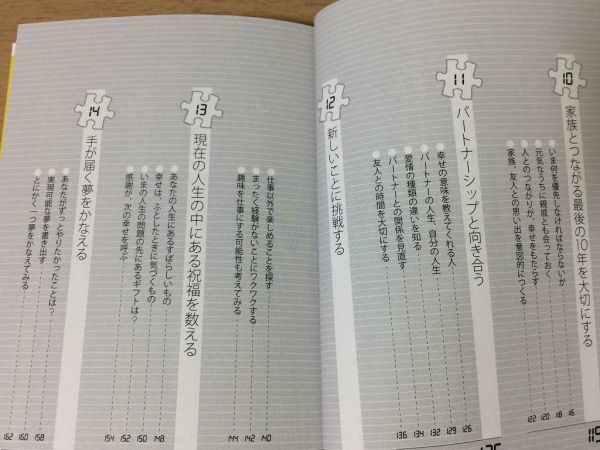 10
家族とつながる最後の10年を大切にする
いま何を優先しなければならないか
元気なうちに親戚とも会っておく
人とのつながりが、幸せをもたらす
家族、友人との思い出を意図的につくる
116
118
120
122
11
パートナーシップと向き合う
幸せの意味を教えてくれる人
パートナーの人生、自分の人生
愛情の種類の違いを知る
パートナーとの関係を見直す
友人との時間を大切にする
126
129
132
134
136
12
新しいことに挑戦する
仕事以外で楽しめることを探す
まったく経験がないことにワクワクする
趣味を仕事にする可能性も考えてみる
140
142
144
13
現在の人生の中にある祝福を数える
あなたの人生にあるすばらしいもの
幸せは、ふとしたときに気づくもの
いまの人生の問題の先にあるギフトは?
感謝が、次の幸せを呼ぶ
148
150
152
154
14
手が届く夢をかなえる
あなたがずっとやりたかったことは?
実現可能な夢を書き出す
とにかく、一つ夢をかなえてみる
158
160
162